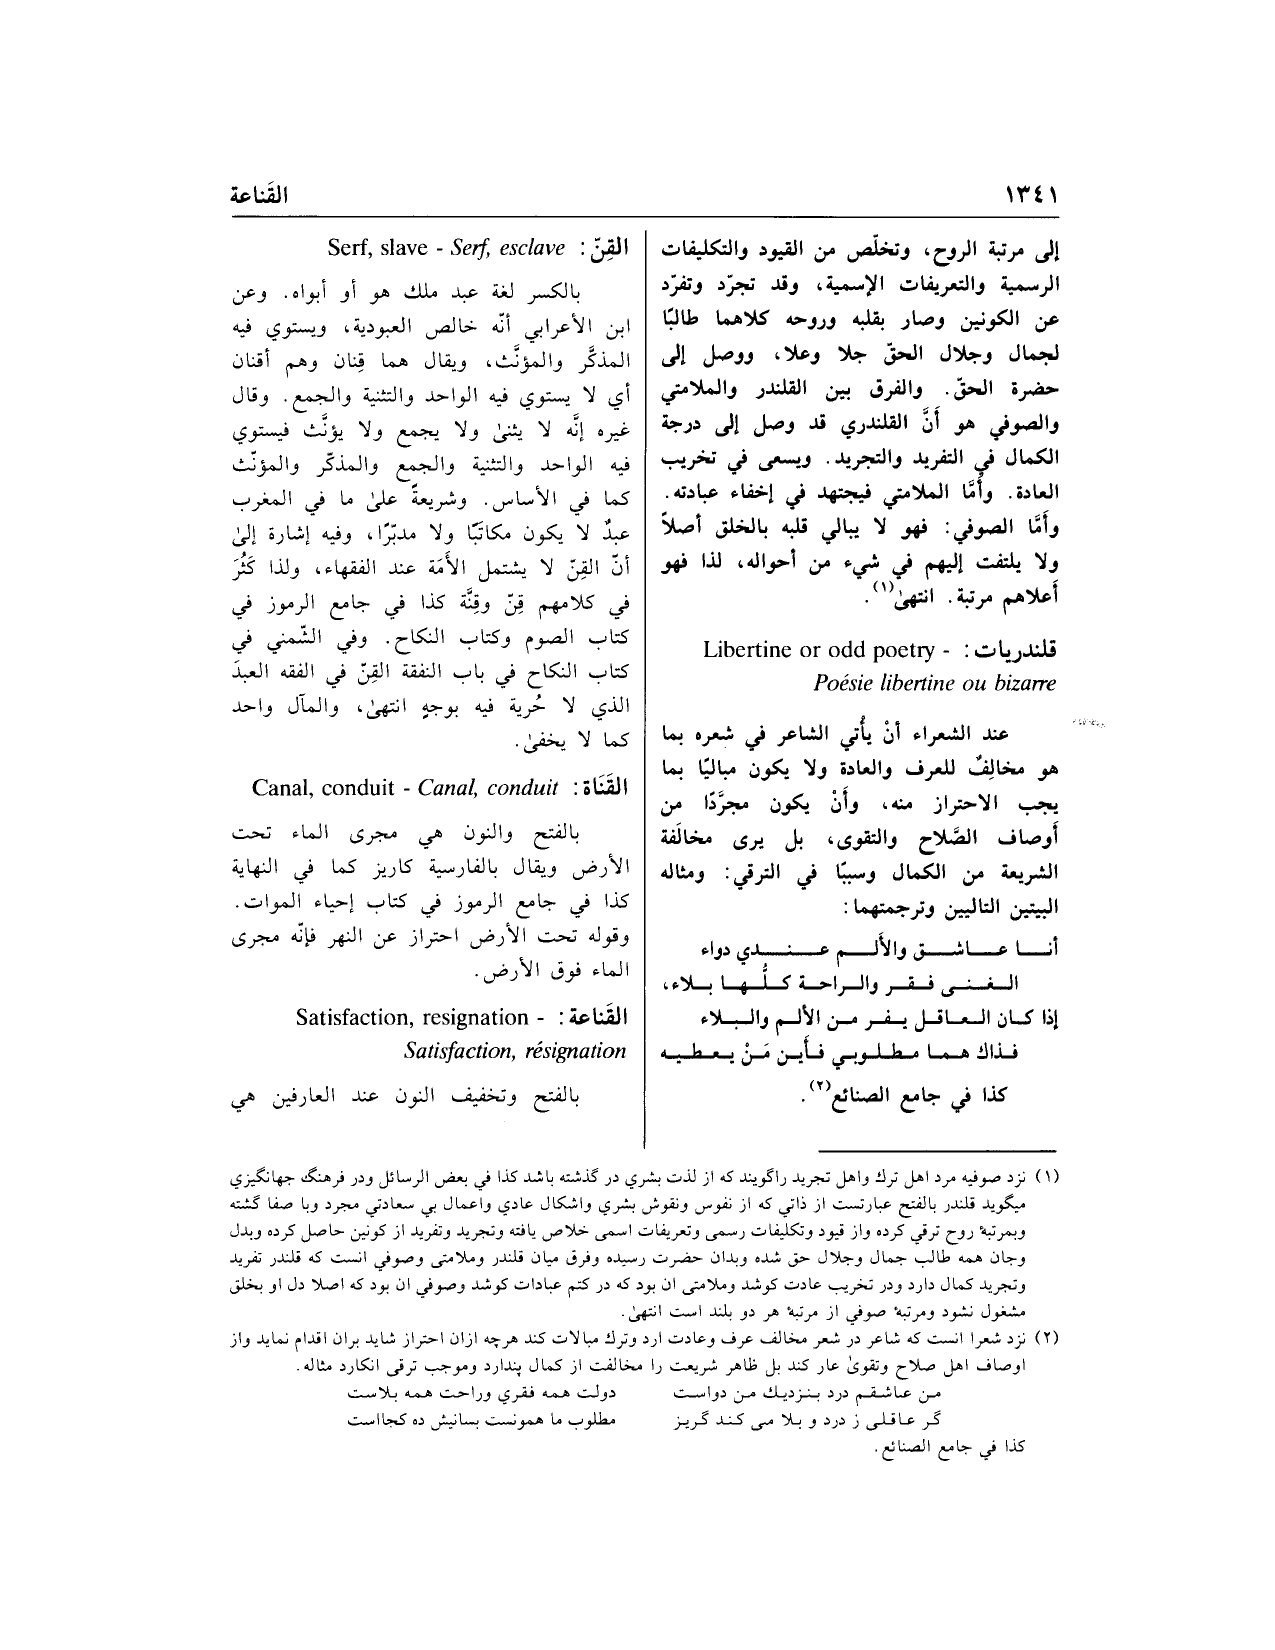 ١٣٤١
القَناعة
إلى مرتبة الروح، وتخلّص من القيود والتكليفات
الرسمية والتعريفات الإسمية، وقد تجرّد وتفرّد
عن الكونين وصار بقلبه وروحه كلاهما طالبًا
لجمال وجلال الحقّ جلا وعلا، ووصل إلى
حضرة الحقّ. والفرق بين القلندر والملامتي
والصوفي هو أنَّ القلندري قد وصل إلى درجة
الكمال في التفريد والتجريد. ويسعى في تخريب
العادة. وأمَّا الملامتي فيجتهد في إخفاء عبادته.
وأمَّا الصوفي: فهو لا يبالي قلبه بالخلق أصلاً
ولا يلتفت إليهم في شيء من أحواله، لذا فهو
أعلاهم مرتبة. انتهىٰ(١).
قلندريات: - Libertine or odd poetry
Poésie libertine ou bizarre
عند الشعراء أنْ يأتي الشاعر في شعره بما
هو مخالِفٌ للعرف والعادة ولا يكون مباليًا بما
يجب الاحتراز منه، وأنْ يكون مجرَّدًا من
أوصاف الصَّلاح والتقوى، بل يرى مخالَفة
الشريعة من الكمال وسببًا في الترقي: ومثاله
البيتين التاليين وترجمتهما:
أنــا عــاشــق والألــم عــنــدي دواء
الـغـنـى فـقـر والـراحـة كـلُّـهـا بـلاء،
إذا كـان الـعـاقـل يـفـر مـن الألـم والـبـلاء
فـذاك هـمـا مـطـلـوبـي فـأيـن مَـنْ يـعـطـيـه
كذا في جامع الصنائع(٢).
القِنّ: Serf, slave - Serf, esclave
بالكسر لغة عبد ملك هو أو أبواه. وعن
ابن الأعرابي أنّه خالص العبودية، ويستوي فيه
المذكَّر والمؤنَّث، ويقال هما قِنان وهم أقنان
أي لا يستوي فيه الواحد والتثنية والجمع. وقال
غيره إنَّه لا يثنىٰ ولا يجمع ولا يؤنَّث فيستوي
فيه الواحد والتثنية والجمع والمذكّر والمؤنّث
كما في الأساس. وشريعةً علىٰ ما في المغرب
عبدٌ لا يكون مكاتبًا ولا مدبّرًا، وفيه إشارة إلىٰ
أنّ القِنّ لا يشتمل الأَمَة عند الفقهاء، ولذا كَثُرَ
في كلامهم قِنّ وقِنَّة كذا في جامع الرموز في
كتاب الصوم وكتاب النكاح. وفي الشّمني في
كتاب النكاح في باب النفقة القِنّ في الفقه العبدَ
الذي لا حُرية فيه بوجهٍ انتهىٰ، والمآل واحد
كما لا يخفىٰ.
القَنَاة: Canal, conduit - Canal, conduit
بالفتح والنون هي مجرى الماء تحت
الأرض ويقال بالفارسية كاريز كما في النهاية
كذا في جامع الرموز في كتاب إحياء الموات.
وقوله تحت الأرض احتراز عن النهر فإنّه مجرى
الماء فوق الأرض.
القَناعة: - Satisfaction, resignation
Satisfaction, résignation
بالفتح وتخفيف النون عند العارفين هي
(١) نزد صوفيه مرد اهل ترك واهل تجريد راگويند كه از لذت بشري در گذشته باشد كذا في بعض الرسائل ودر فرهنگ جهانگيزي
ميگويد قلندر بالفتح عبارتست از ذاتي كه از نفوس ونقوش بشري واشكال عادي واعمال بي سعادتي مجرد وبا صفا گشته
وبمرتبهٔ روح ترقي كرده واز قيود وتكليفات رسمى وتعريفات اسمى خلاص يافته وتجريد وتفريد از كونين حاصل كرده وبدل
وجان همه طالب جمال وجلال حق شده وبدان حضرت رسيده وفرق ميان قلندر وملامتى وصوفي انست كه قلندر تفريد
وتجريد كمال دارد ودر تخريب عادت كوشد وملامتى ان بود كه در كتم عبادات كوشد وصوفي ان بود كه اصلا دل او بخلق
مشغول نشود ومرتبهٔ صوفي از مرتبهٔ هر دو بلند است انتهىٰ.
(٢) نزد شعرا انست كه شاعر در شعر مخالف عرف وعادت ارد وترك مبالات كند هرچه ازان احتراز شايد بران اقدام نمايد واز
اوصاف اهل صلاح وتقوىٰ عار كند بل ظاهر شريعت را مخالفت از كمال پندارد وموجب ترقى انكارد مثاله.
من عاشقم درد بنزديك من دواست دولت همه فقري وراحت همه بلاست
گر عاقلى ز درد و بلا مى كند گريز مطلوب ما همونست بسانيش ده كجااست
كذا في جامع الصنائع.